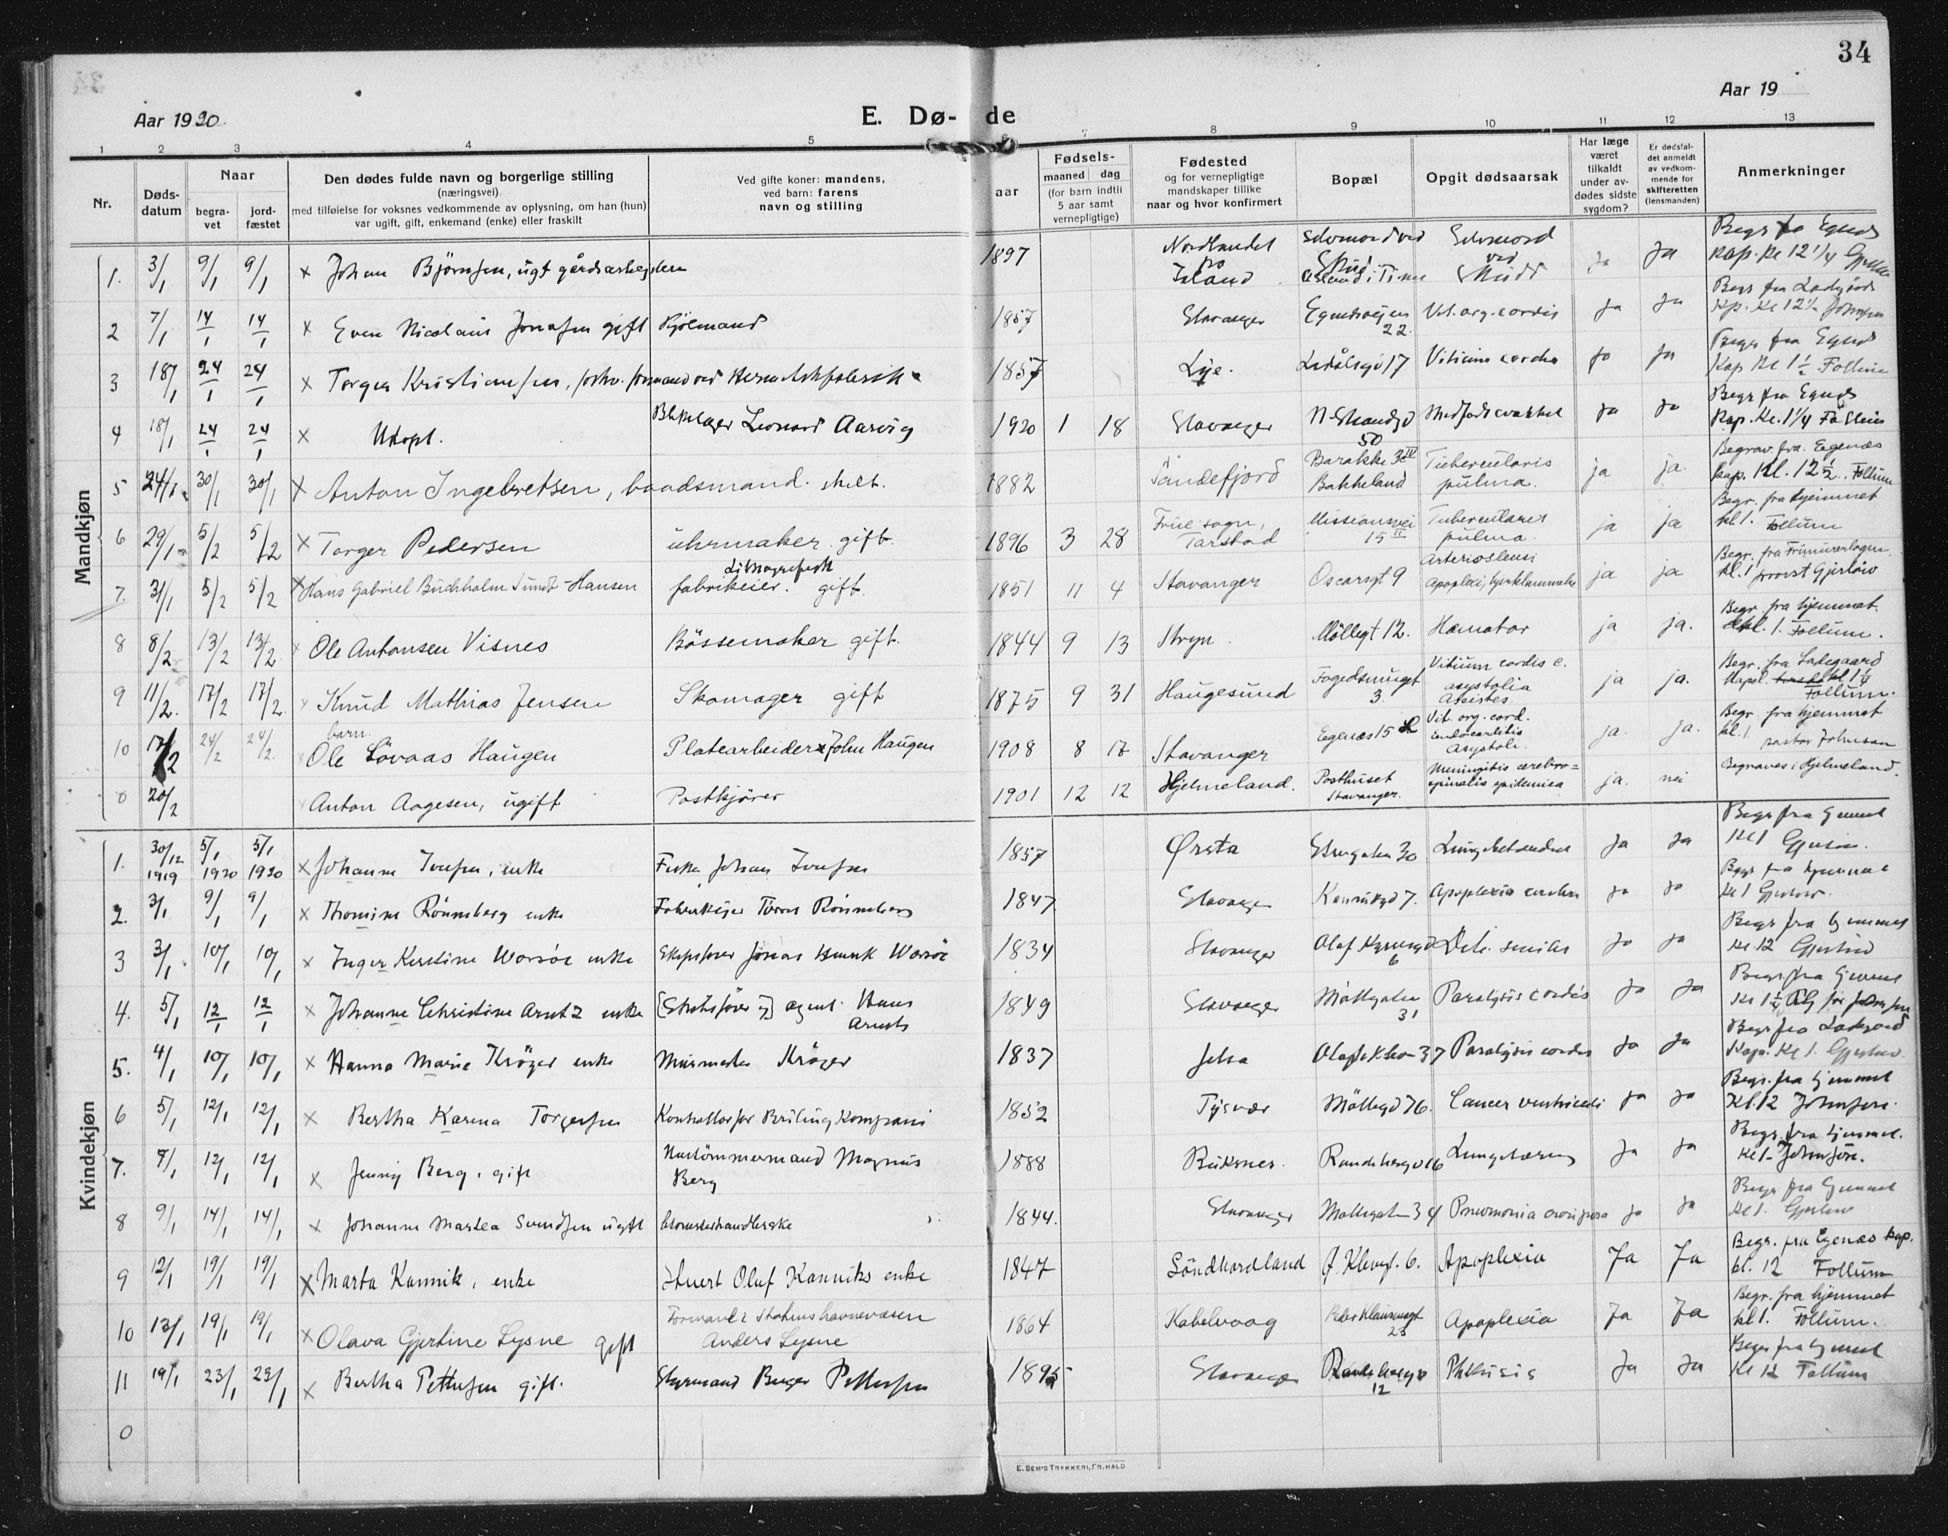 34
Aar 1920.
E. Dø- de
Aar 19
1 2 3 4 5 6 7 8 9 10 11 12 13
Nr.
Døds-
datum
Naar
begra-
vet
jord-
fæstet
Den dødes fulde navn og borgerlige stilling
(næringsvei)
med tilføielse for voksnes vedkommende av oplysning, om han (hun)
var ugift, gift, enkemand (enke) eller fraskilt
Ved gifte koner: mandens,
ved barn: farens
navn og stilling
aar
Fødsels-
maaned dag
(for barn indtil
5 aar samt
vernepligtige)
Fødested
og for vernepligtige
mandskaper tillike
naar og hvor konfirmert
Bopæl
Opgit dødsaarsak
Har læge
været
tilkaldt
under av-
dødes sidste
sygdom?
Er dødsfal-
det anmeldt
av vedkom-
mende for
skifteretten
(lensmanden)
Anmerkninger
Mandkjøn
1. 3/1 9/1 9/1 x Johan Bjørnsen, ugt gårdsarbeidere 1897 Nordlandet Island Selvmord ved Skud Selvmord ved Skudd Ja Ja Begr fra Egnes kap. Kl 12 1/4
2 7/1 14/1 14/1 x Even Nicolaus Jonassen gift 1857 Stavanger Egenesveien 22. Vit. org. cordis Ja Ja Kl 12
3 18/1 24/1 24/1 x Torger Kristiansen, 1857 Lye. Ladålsgt 17 Vitium cordis Ja Ja Begr fra Egnes Kap Kl 1 1/2 Follum
4 18/1 24/1 24/1 x Udøpt. Leonard Aarvig 1920 1 18 Stavanger N. Strandgd 50 Medfødt svakhet Ja Ja Begr fra Egnes Kap. Kl. 1 1/4 Follum
5 24/1 30/1 30/1 x Anton Ingebretsen, baadsmand. skilt. 1882 Sandefjord Barakke Bakkeland Tuberculosis pulma. ja ja. Begrav. fra. Egenæs kap. kl. 12 1/2. Follum
6 29/1 5/2 5/2 x Torger Pedersen uhrmaker. gift. 1896 3 28 sogn, Tarstad Missionsvei 15 II Tuberculoses pulma. ja ja Begr. fra hjemmet kl 1. Follum
7. 31/1 5/2 5/2 x Hans Gabriel Buchholm Sundt-Hansen Litografisk fabrikeier. gift. 1851 11 4 Stavanger Oscarsgt 9 Apoplexi, ja ja Begr. fra Frimurerlogen. kl. 1 provst Gjerløw
8 8/2 13/2 13/2 x Ole Antonsen Visnes Bössemaker gift. 1844 9 13 Stryn. Møllegt 12. ja ja. Begr. fra hjemmet kl. 1. Follum.
9 11/2. 17/2 17/2. x Knud Mathias Jensen Skomager gift 1875 9 31 Haugesund Fogedsmugt 3. Vitium cordis c. asystolia Ascites. ja ja. Begr. fra Ladegaard kapel. kl 1 1/4 Follum.
10 17/2 24/2 24/2. barn Ole Løvaas Haugen Platearbeider John Haugen 1908 8 17 Stavanger Egenæs 15 Vit. org. cord. Endocarditis asystoli. ja. ja. Begr. fra hjemmet kl. 1 pastor Johnsen
0 20/2 Anton Aagesen, ugift Postkjører 1901 12 12 Hjelmeland. Posthuset Stavanger. Meningitis cerebro= spinalis epidemica ja. nei Begraves i Hjelmeland.
Kvindekjøn
1. 30/12 1919 5/1 1920 5/1 1920 x Johanne Iversen, enke Johan Iversen 1857 Ørsta 30 Lungebetændelse Ja Ja Begr fra hjemmet Kl 1
2. 3/1 9/1 9/1 x Thomine Rønneberg enke Rønneberg 1847 Stavanger Kannikgd 7. Apoplexia cerebri Ja Ja Begr fra hjemmet Kl 1 Gjerløw.
3 3/1 10/1 10/1 x Inger Kerstine Worsöe enke Skipsfører Jonas Henrik Worsöe 1834 Stavanger Olaf Kyrresgd 6 Deb. senilis Ja Ja Begr fra hjemmet Kl 12 Gjerløw
4. 5/1 12/1 12/1 x Johanne Christine Arntz enke agent. Hans Arntz 1849 Stavanger Möllegaten 31 Paralysis cordis Ja Ja Begr fra hjemmet Kl 1 1/2
5. 4/1 10/1 10/1 x Hanna Marie Kröger enke Murmester Kröger 1837 Jelsa 37 Paralysis cordis Ja Ja Begr fra Ladegård Kap. Kl 1. Gjerløw.
6 5/1 12/1 12/1 x Bertha Karena Torgersen 1852 Tysvær Möllegd 76. Cancer ventriculi Ja Ja Begr. fra hjemmet Kl. 12 Johnsen.
7. 9/1 12/1 12/1 x Jenny Berg, gift Hustømmermand Magnus Berg 1888 Buksnes. Randebergv 16 Lungetæring Ja Ja Begr. fra hjemmet. Kl 1. Johnsen.
8 9/1 14/1 14/1 x Johanne Martea Svendsen ugift 1844. Stavanger Møllegaten 34 Pneumonia crouposa Ja Ja Begr fra hjemmet Kl 1. Gjerløw
9 12/1 19/1 19/1 x Marta Kannik, enke Olaf Kanniks enke 1847 Söndhordland 6. Apoplexia Ja Ja Begr. fra Egenæs kap. kl. 12 Follum
10 13/1 19/1 19/1 x Olava Gjertine Lysne gift Formand i Statens havnevæsen Anders Lysne 1864 Kabelvaag 23 Apoplexia Ja Ja Begr. fra hjemmet kl 1. Follum.
11 19/1 23/1 23/1 x Bertha Pettersen gift. Styrmand Berger Pettersen 1895 Stavanger 12 Phthisis Ja Ja Begr fra hjemmet Kl 12 Follum
0
E. SEM'S TRYKKERI, FR. HALD